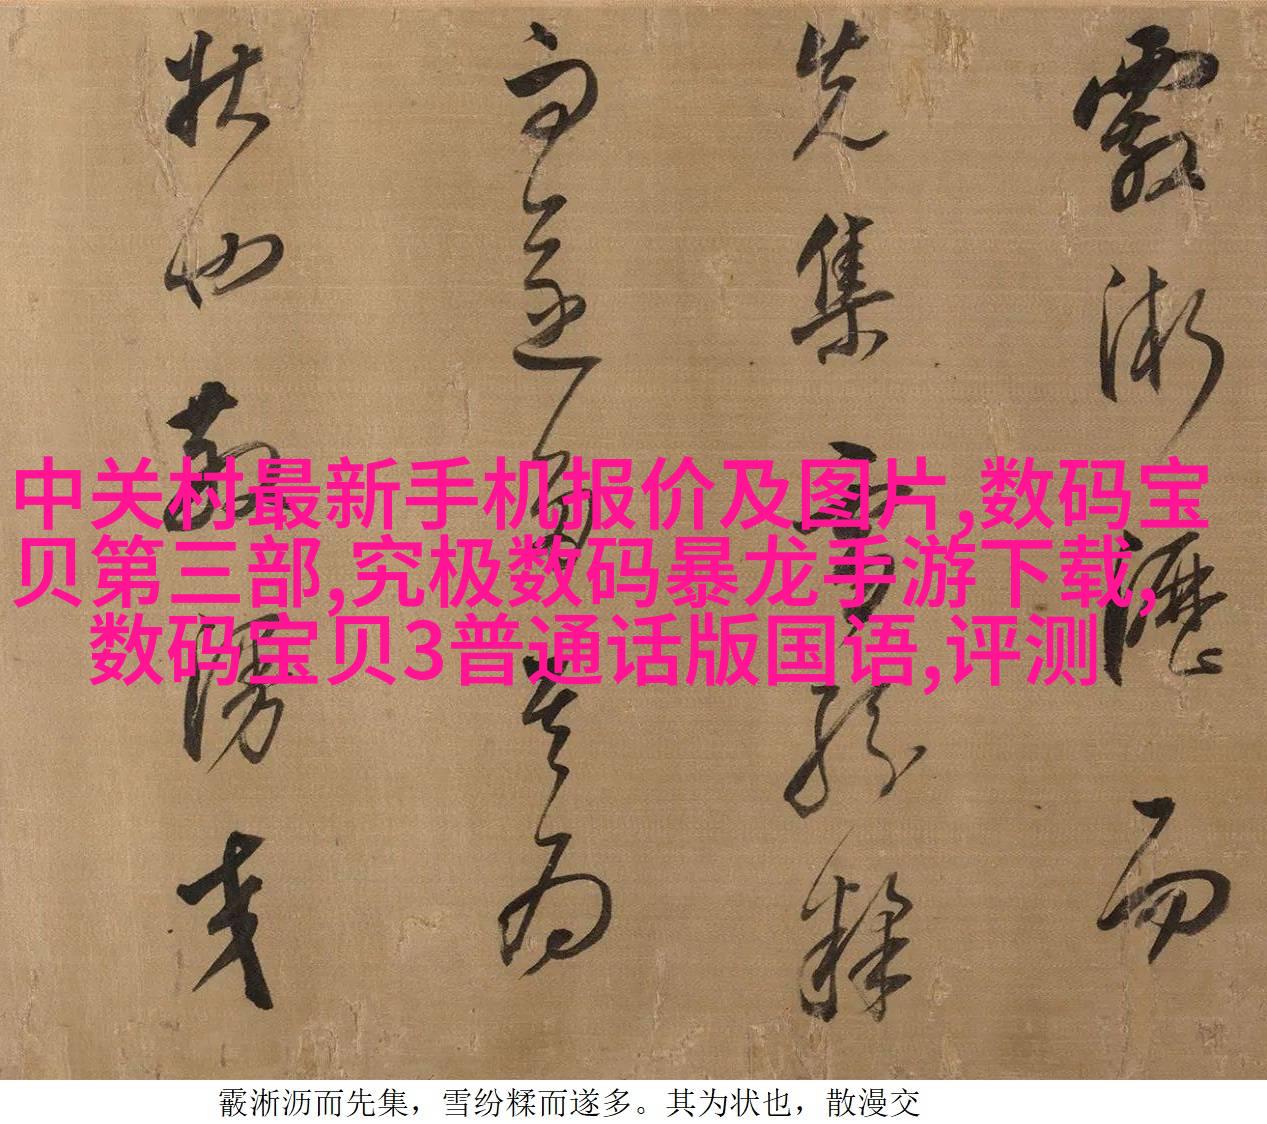 霰淅瀝而
先集雪紛糅
而遂多其為
狀也散漫交
中关村最新手机报价及图片,数码宝
贝第三部,究极数码暴龙手游下载,
数码宝贝3普通话版国语,评测
霰淅沥而先集，雪纷糅而遂多。其为状也，散漫交